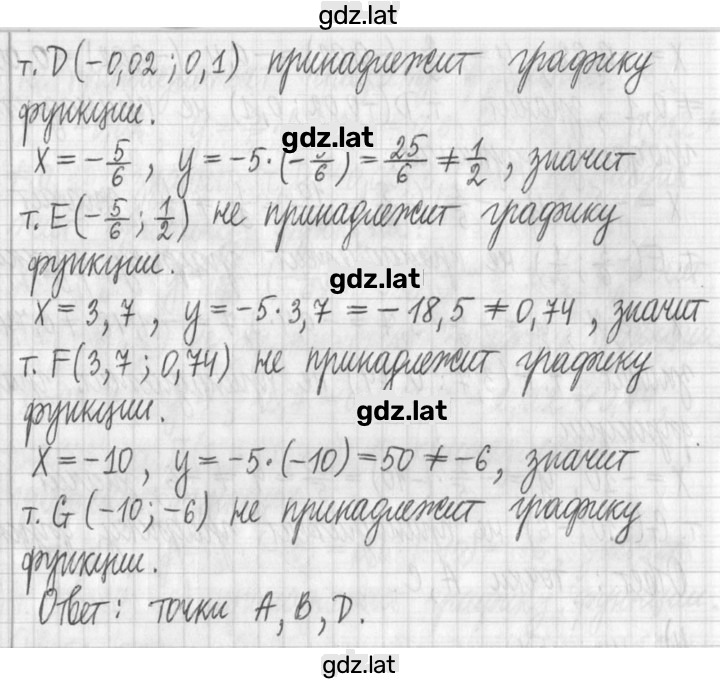 gdz.lat
т. D (-0,02 ; 0,1) принадлежит графику
функции.
gdz.lat
x = -5/6 , y = -5·(-5/6) = 25/6 ≠ 1/2 , значит
т. E(-5/6 ; 1/2) не принадлежит графику
функции.
gdz.lat
x = 3,7 , y = -5·3,7 = -18,5 ≠ 0,74 , значит
т. F(3,7 ; 0,74) не принадлежит графику
функции.
gdz.lat
x = -10, y = -5·(-10) = 50 ≠ -6, значит
т. G (-10; -6) не принадлежит графику
функции.
Ответ: точки A, B, D.
gdz.lat